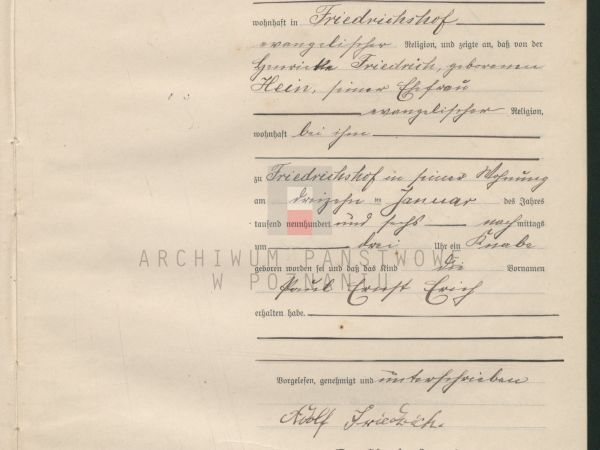 wohnhaft in Friedrichshof
evangelischer Religion, und zeigte an, daß von der
Henriette Friedrich, geborenen
Hein, seiner Ehefrau
evangelischer Religion,
wohnhaft bei ihm
zu Friedrichshof in seiner Wohnung
am dreizehn ten Januar des Jahres
tausend neunhundert und sechs nachmittags
um drei Uhr ein Knabe
geboren worden sei und daß das Kind die Vornamen
Paul Ernst Erich
erhalten habe.
Vorgelesen, genehmigt und unterschrieben
Adolf Friedrich.
ARCHIWUM PAŃSTWOWE
W POZNANIU